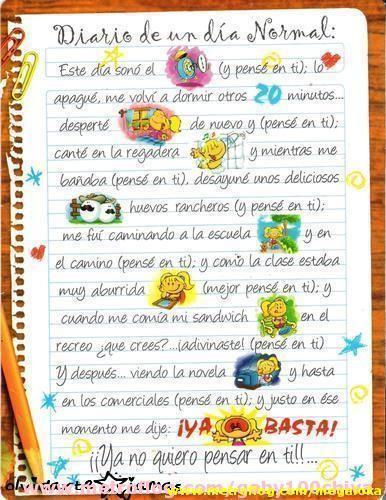 Diario de un día Normal:
Este día sonó el (y pensé en ti); lo
apagué, me volví a dormir otros 20 minutos...
desperté de nuevo y (pensé en ti);
canté en la regadera y mientras me
bañaba (pensé en ti), desayuné unos deliciosos
huevos rancheros (y pensé en ti);
me fuí caminando a la escuela y en
el camino (pensé en ti); y como la clase estaba
muy aburrida (mejor pensé en ti); y
cuando me comía mi sandwich en el
recreo ¿que crees?...¡adivinaste! (pensé en ti)
Y después... viendo la novela y hasta
en los comerciales (pensé en ti); y justo en ése
momento me dije: ¡YA BASTA!
¡¡Ya no quiero pensar en ti!!...